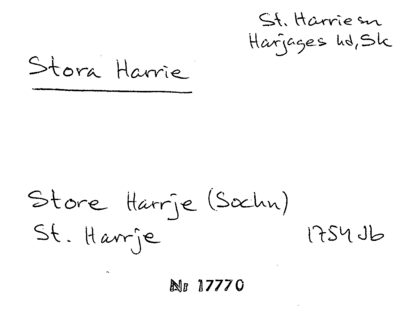 St. Harrie sn
Harjages hd, Sk
Stora Harrie
Store Harrje (Sochn)
St. Harrje 1754 Jb
Nr 17770